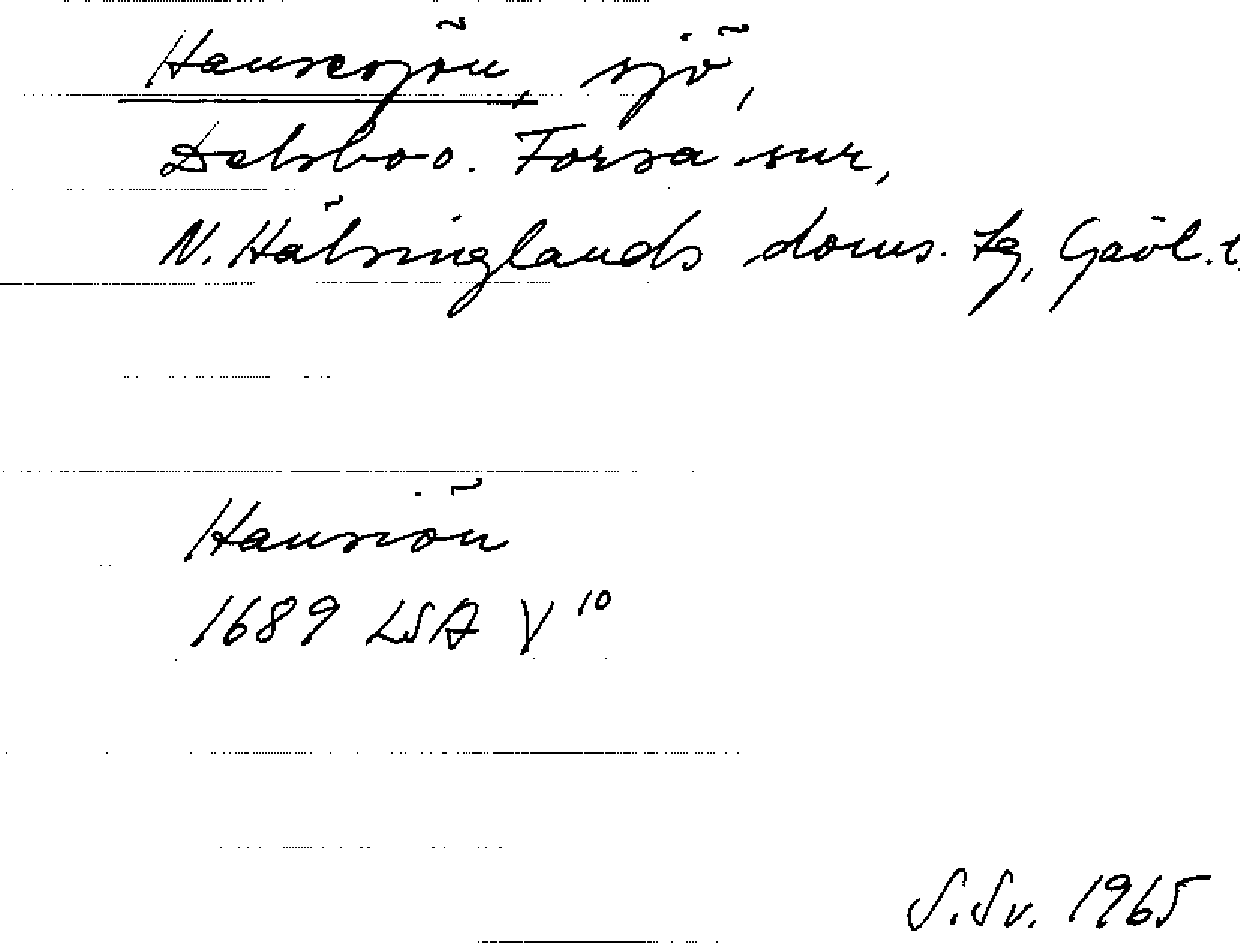 Hansesjön, sjö,
Delsbo o. Forsa snr,
N. Hälsinglands doms. tg, Gävl. l.
Hansiön
1689 LSA V¹⁰
S.Sv. 1965